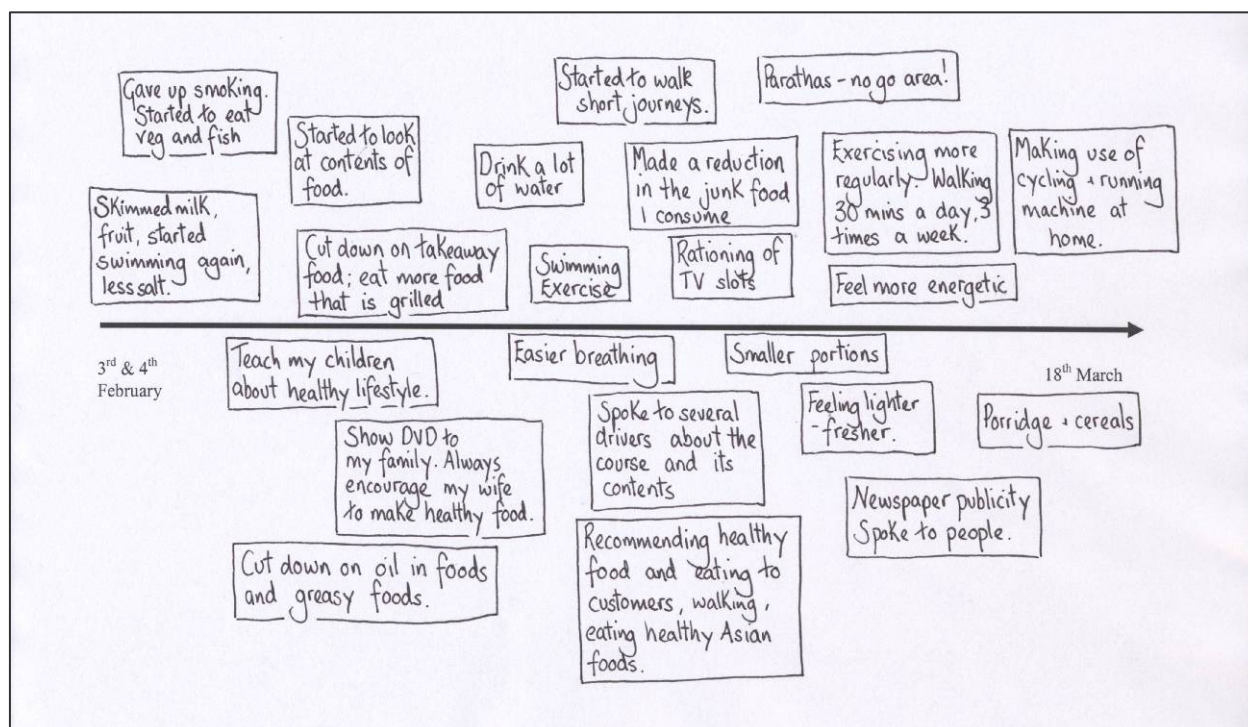 Gave up smoking.
Started to eat
veg and fish
Started to look
at contents of
food.
Started to walk
short journeys.
Parathas - no go area!
Skimmed milk,
fruit, started
swimming again,
less salt.
Cut down on takeaway
food; eat more food
that is grilled
Drink a lot
of water
Swimming
Exercise
Made a reduction
in the junk food
I consume
Rationing of
TV slots
Exercising more
regularly. Walking
30 mins a day, 3
times a week.
Feel more energetic
Making use of
cycling + running
machine at
home.
3rd & 4th
February
18th March
Teach my children
about healthy lifestyle.
Show DVD to
my family. Always
encourage my wife
to make healthy food.
Cut down on oil in foods
and greasy foods.
Easier breathing
Spoke to several
drivers about the
course and its
contents
Recommending healthy
food and eating to
customers, walking,
eating healthy Asian
foods.
Smaller portions
Feeling lighter
- fresher.
Newspaper publicity
Spoke to people.
Porridge + cereals